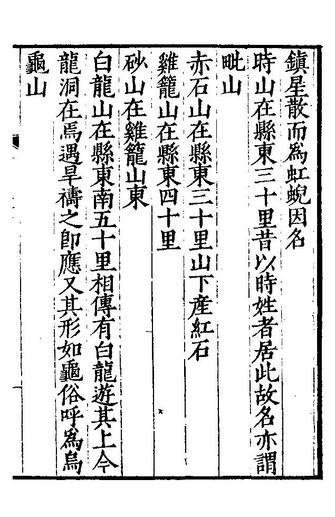 鎮星散而為虹蜺因名
時山在縣東三十里昔以時姓者居此故名亦謂
毗山
赤石山在縣東三十里山下產紅石
雞籠山在縣東四十里
砂山在雞籠山東
白龍山在縣東南五十里相傳有白龍遊其上今
龍洞在焉遇旱禱之即應又其形如龜俗呼為烏
龜山